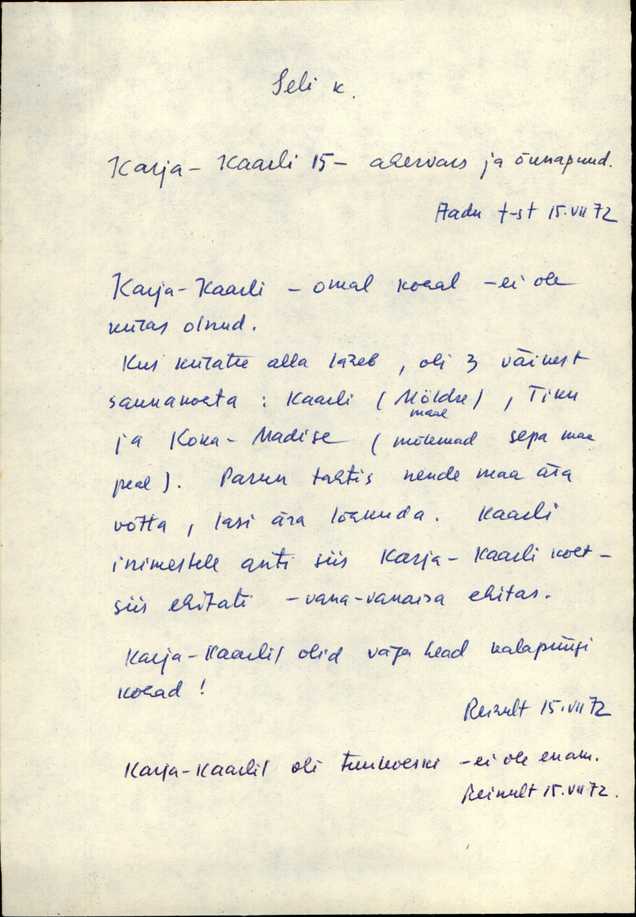 Seli k.
Karja-Kaarli 15 - ahervars ja õunapuud.
Aadu t-st 15.VII 72
Karja-Kaarli - omal kohal - ei ole
külas olnud.
Kus külatee alla läheb, oli 3 väikest
saunakohta: Kaarli (Möldre), Tinu
maal
ja Koka-Madise (mõlemad sepa maa
peal). Parun tahtis nende maa ära
võtta, lasi ära lõhkuda. Kaarli
inimestele anti siis Karja-Kaarli koht -
siis ehitati - vana-vanaisa ehitas.
Karja-Kaarlil olid väga head kalapüügi
kohad!
Reinult 15.VII 72
Karja-Kaarlil oli tuuleveski - ei ole enam.
Reinult 15.VII 72.